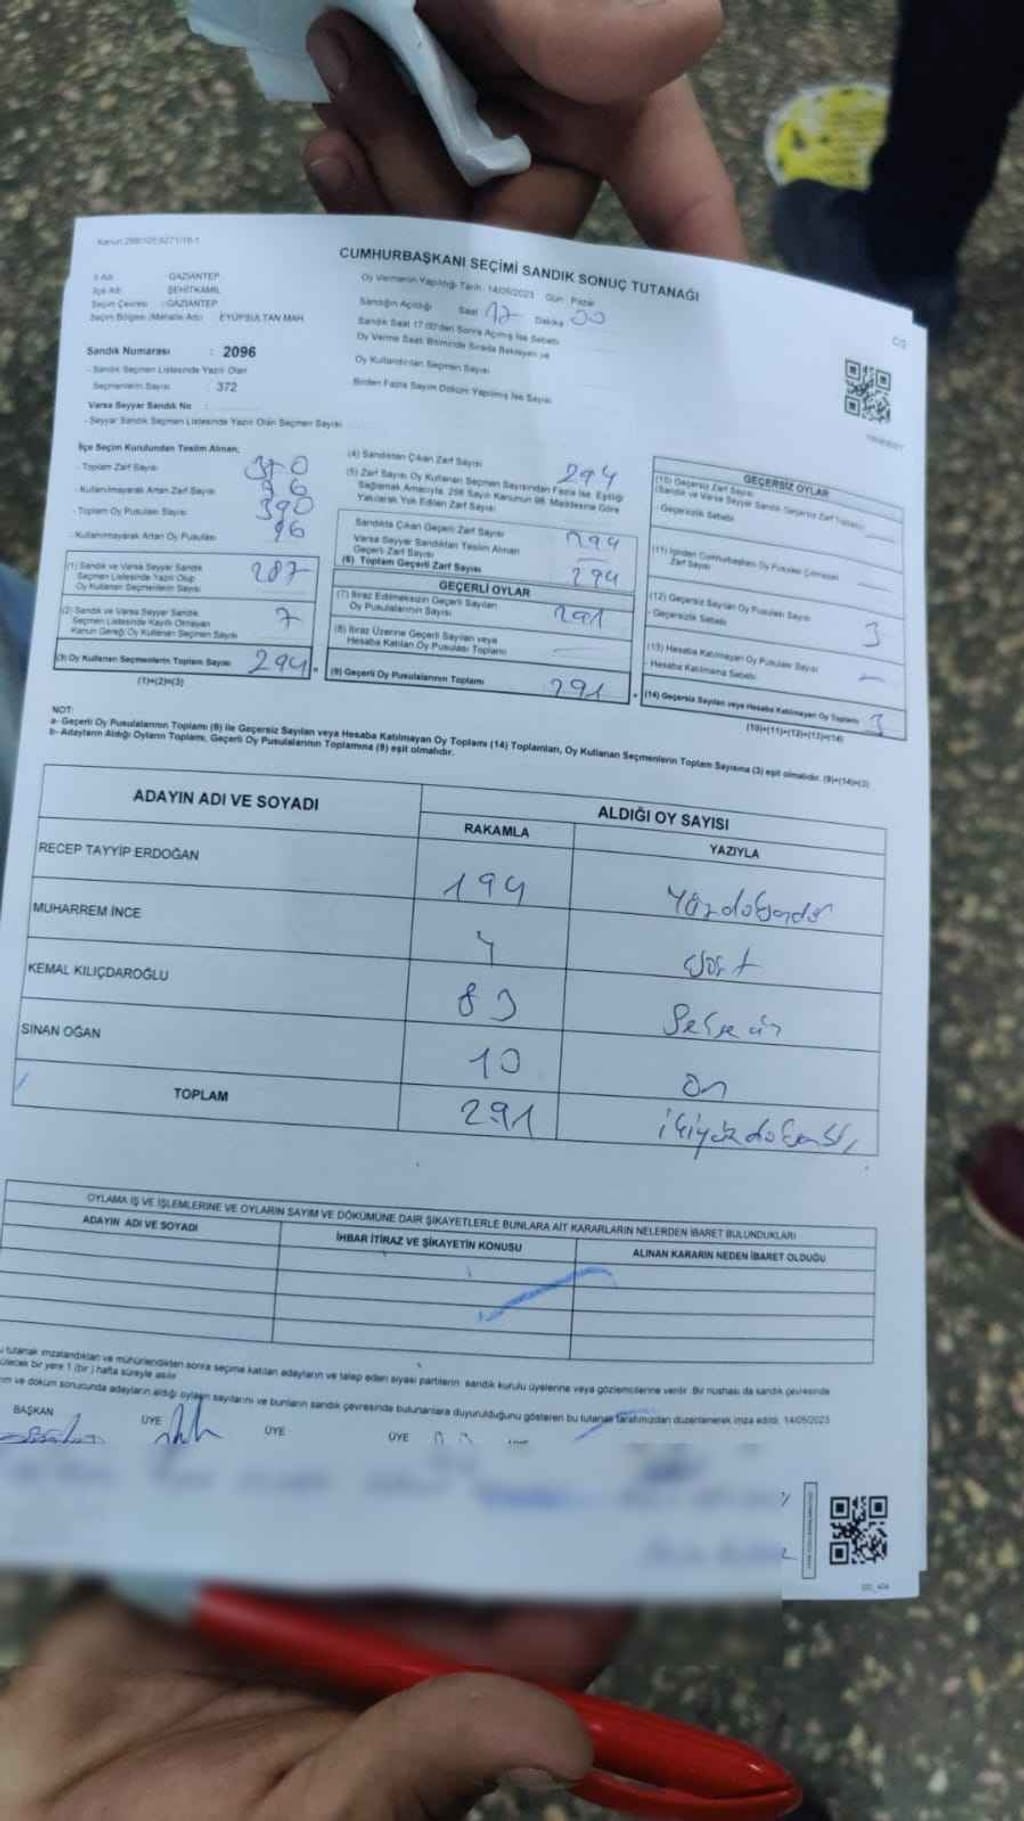 CUMHURBAŞKANI SEÇİMİ SANDIK SONUÇ TUTANAĞI
Oy Vermenin Yapıldığı Tarih: 14/05/2023 Gün: Pazar
İl Adı : GAZİANTEP
İlçe Adı : ŞEHİTKAMİL
Seçim Çevresi : GAZİANTEP
Seçim Bölgesi /Mahalle Adı : EYÜPSULTAN MAH.
Sandığın Açıldığı Saat 17 Dakika 00
Sandık Saat 17.00'den Sonra Açılmış İse Sebebi
Oy Verme Saati Bitiminde Sırada Bekleyen ve
Oy Kullandırılan Seçmen Sayısı
Birden Fazla Sayım Döküm Yapılmış İse Sayısı
Sandık Numarası : 2096
- Sandık Seçmen Listesinde Yazılı Olan
Seçmenlerin Sayısı : 372
Varsa Seyyar Sandık No :
- Seyyar Sandık Seçmen Listesinde Yazılı Olan Seçmen Sayısı
İlçe Seçim Kurulundan Teslim Alınan,
- Toplam Zarf Sayısı
- Kullanılmayarak Artan Zarf Sayısı
- Toplam Oy Pusulası Sayısı 390
- Kullanılmayarak Artan Oy Pusulası 96
(1) Sandık ve Varsa Seyyar Sandık
Seçmen Listesinde Yazılı Olup
Oy Kullanan Seçmenlerin Sayısı 287
(2) Sandık ve Varsa Seyyar Sandık
Seçmen Listesinde Kayıtlı Olmayan
Kanun Gereği Oy Kullanan Seçmen Sayısı 7
(3) Oy Kullanan Seçmenlerin Toplam Sayısı 294
(1)+(2)=(3)
(4) Sandıktan Çıkan Zarf Sayısı 294
(5) Zarf Sayısı Oy Kullanan Seçmen Sayısından Fazla İse, Eşitliği
Sağlamak Amacıyla, 298 Sayılı Kanunun 98. Maddesine Göre
Yakılarak Yok Edilen Zarf Sayısı
Sandıkta Çıkan Geçerli Zarf Sayısı 294
Varsa Seyyar Sandıktan Teslim Alınan
Geçerli Zarf Sayısı
(6) Toplam Geçerli Zarf Sayısı 294
GEÇERLİ OYLAR
(7) İtiraz Edilmeksizin Geçerli Sayılan
Oy Pusulalarının Sayısı 291
(8) İtiraz Üzerine Geçerli Sayılan veya
Hesaba Katılan Oy Pusulası Toplamı
(9) Geçerli Oy Pusulalarının Toplamı 291
GEÇERSİZ OYLAR
(10) Geçersiz Zarf Sayısı
- Geçersizlik Sebebi
(11) İçinden Cumhurbaşkanı Oy Pusulası Çıkmayan
Zarf Sayısı
(12) Geçersiz Sayılan Oy Pusulası Sayısı 3
- Geçersizlik Sebebi
(13) Hesaba Katılmayan Oy Pusulası Sayısı
Hesaba Katılmama Sebebi
(14) Geçersiz Sayılan veya Hesaba Katılmayan Oy Toplamı 3
(10)+(11)+(12)+(13)=(14)
NOT:
a- Geçerli Oy Pusulalarının Toplamı (9) ile Geçersiz Sayılan veya Hesaba Katılmayan Oy Toplamı (14) Toplamları, Oy Kullanan Seçmenlerin Toplam Sayısına (3) eşit olmalıdır. (9)+(14)=(3)
b- Adayların Aldığı Oyların Toplamı, Geçerli Oy Pusulalarının Toplamına (9) eşit olmalıdır.
ADAYIN ADI VE SOYADI
ALDIĞI OY SAYISI
RAKAMLA YAZIYLA
RECEP TAYYİP ERDOĞAN 194 Yüzdoksandör
MUHARREM İNCE 4 dört
KEMAL KILIÇDAROĞLU 83
SİNAN OĞAN 10 on
TOPLAM 291
OYLAMA İŞ VE İŞLEMLERİNE VE OYLARIN SAYIM VE DÖKÜMÜNE DAİR ŞİKAYETLERLE BUNLARA AİT KARARLARIN NELERDEN İBARET BULUNDUKLARI
ADAYIN ADI VE SOYADI İHBAR İTİRAZ VE ŞİKAYETİN KONUSU ALINAN KARARIN NEDEN İBARET OLDUĞU
tutanak imzalandıktan ve mühürlendikten sonra seçime katılan adayların ve talep eden siyasi partilerin sandık kurulu üyelerine veya gözlemcilerine verilir. Bir nüshası da sandık çevresinde
bir yere 1 (bir) hafta süreyle asılır.
ve döküm sonucunda adayların aldığı oyların sayılarını ve bunların sandık çevresinde bulunanlara duyurulduğunu gösteren bu tutanak tarafımızdan düzenlenerek imza edildi. 14/05/2023
BAŞKAN ÜYE ÜYE ÜYE